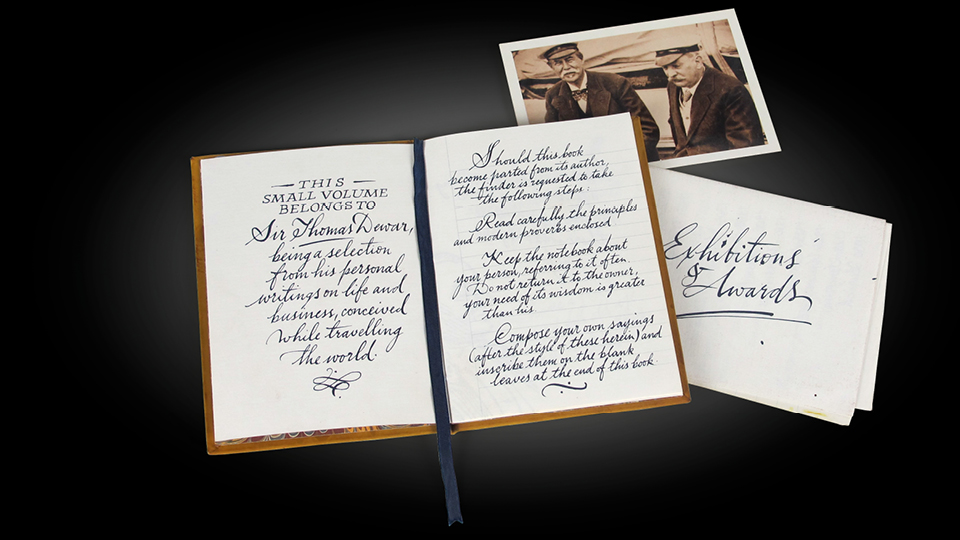 THIS
SMALL VOLUME
BELONGS TO
Sir Thomas Dewar,
being a selection
from his personal
writings on life and
business, conceived
while travelling
the world.
Should this book
become parted from its author,
the finder is requested to take
the following steps:
Read carefully the principles
and modern proverbs enclosed
Keep the notebook about
your person, referring to it often.
Do not return it to the owner,
your need of its wisdom is greater
than his.
Compose your own sayings
(after the style of these herein) and
inscribe them on the blank
leaves at the end of this book.
Exhibitions
& Awards